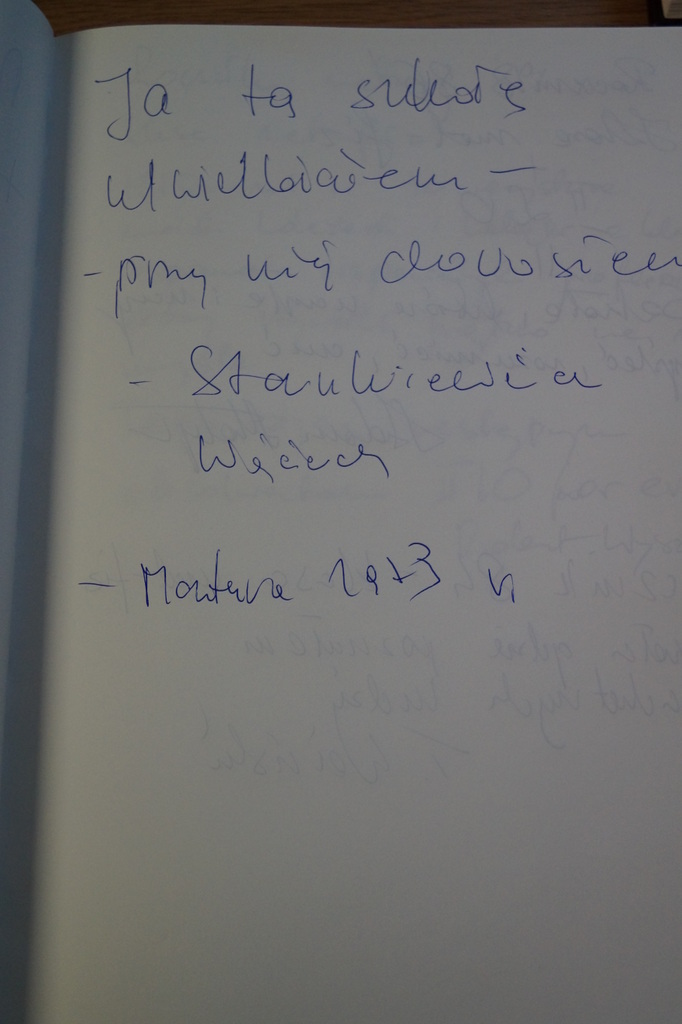 Ja tą szkołę
uwielbiałem -
- przy niej dorosłem
- Stankiewicz
Wojciech
- Matura 1973 r.